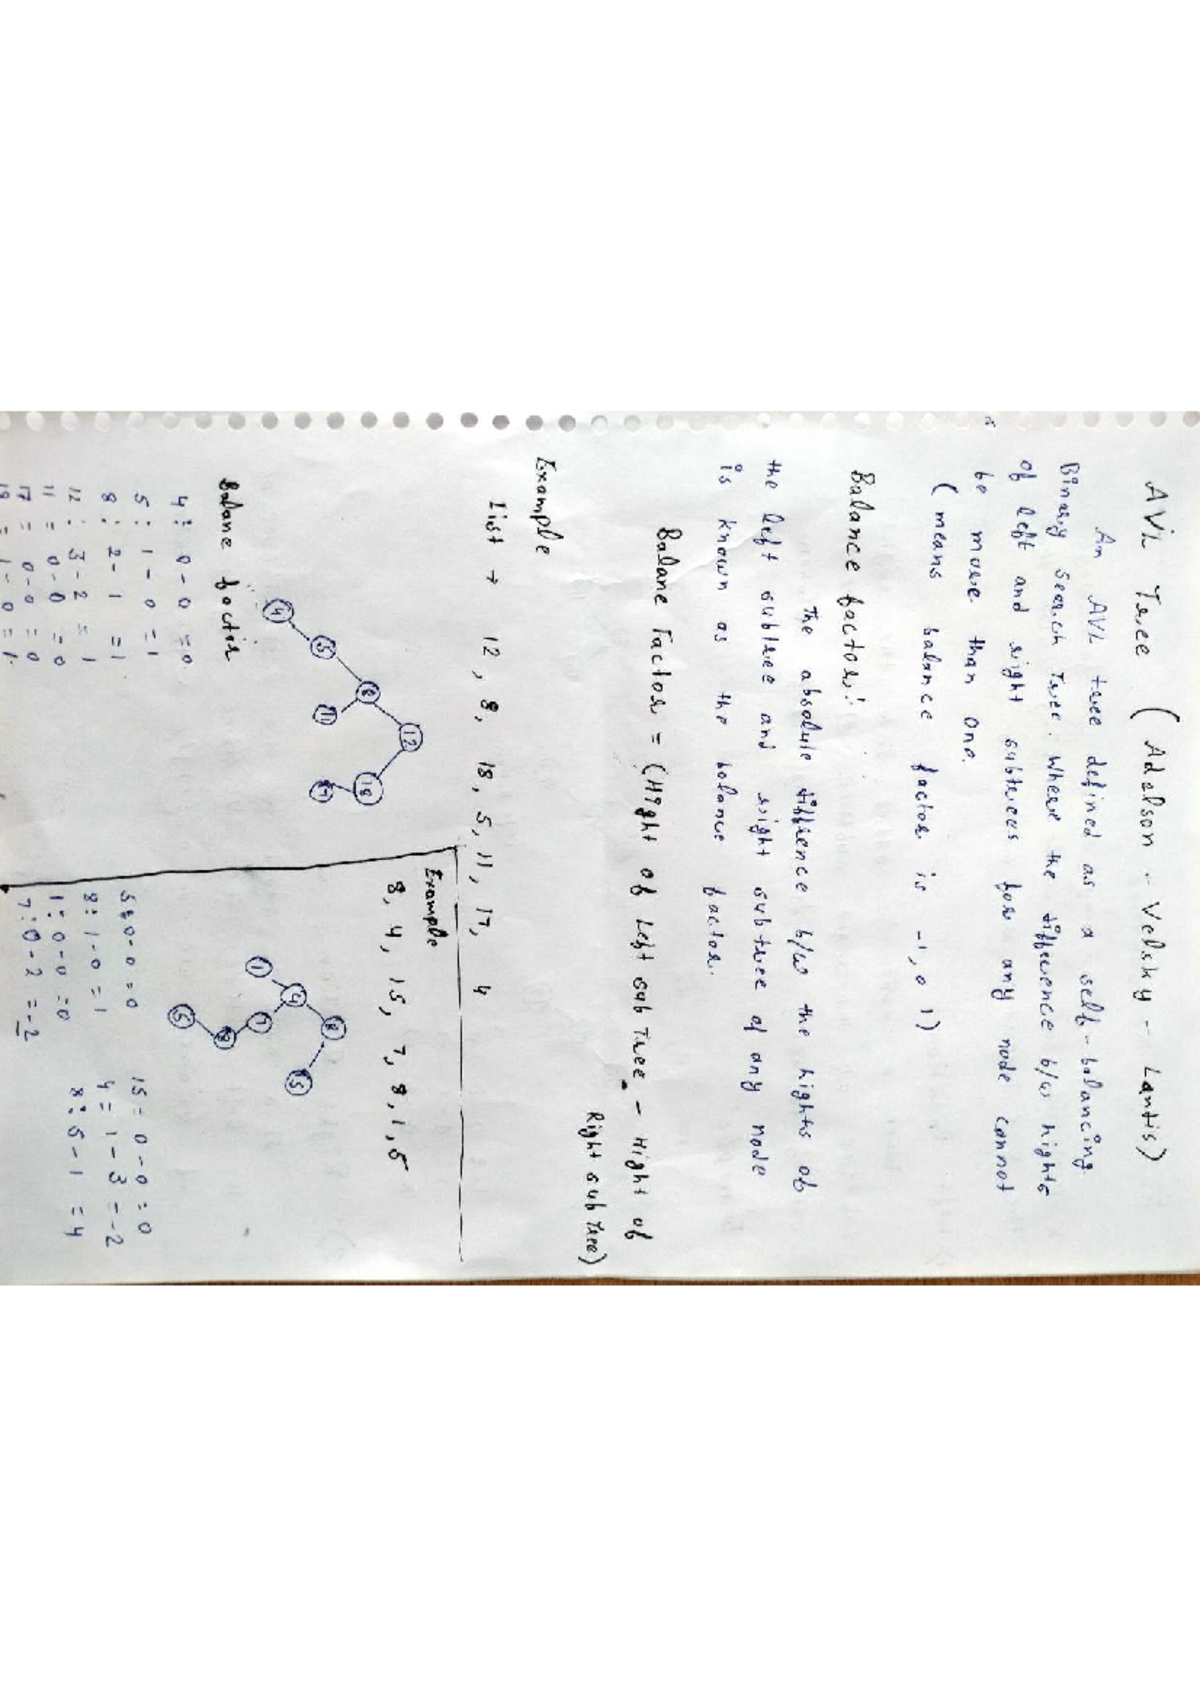 AVL Tree (Adelson - Velsky - Lantis)
An AVL tree defined as a self-balancing
Binary Search Tree. Where the difference b/w hights
of left and right subtrees for any node cannot
be more than one.
(means balance factor is -1, 0 1)
Balance factor:
The absolute difference b/w the hights of
the left subtree and right subtree of any node
is known as the balance factor.
Balane Factor = (Hight of Left sub Tree - Hight of
Right sub Tree)
Example
List → 12, 8, 18, 5, 11, 17, 4
12
8 18
5 11 17
4
Balane factor
4: 0-0 =0
5: 1-0 =1
8: 2-1 =1
12: 3-2 = 1
11 = 0-0 =0
17 = 0-0 =0
18 = 1-0 =1
Example
8, 4, 15, 7, 9, 1, 5
8
4 15
1 7
5
5: 0-0 =0
8: 1-0 =1
1: 0-0 =0
7: 0-2 =-2
15= 0-0=0
4 = 1-3 =-2
8: 5-1 =4